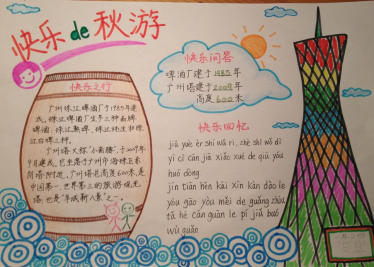 快乐de秋游
快乐之行
广州珠江啤酒厂于1985年建
成，珠江啤酒厂生产三种品牌
啤酒，珠江熟啤、珠江纯生和珠
江白啤三种。
广州塔又称“小蛮腰”，于2009年
9月建成，它坐落于广州市海珠区赤
岗塔附近，广州塔总高度600米，是
中国第一、世界第三的旅游观光
塔，也是“羊城新八景”之一。
快乐问答
啤酒厂建于1985年
广州塔建于2009年
高度600米
快乐回忆
jiǔ yuè èr shí wǔ rì, zhè shì wǒ dì
yī cì cān jiā xiǎo xué de qiū yóu
huó dòng
jīn tiān hěn kāi xīn kàn dào le
yòu gāo yòu měi de guǎng zhōu
tǎ hé cān guān le pí jiǔ bó
wù guǎn